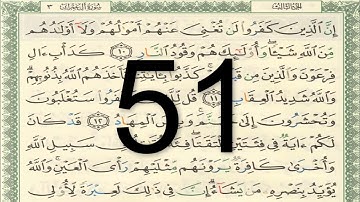 الجزء الثالث سورة آل عمران ٣
إِنَّ الَّذِينَ كَفَرُوا لَن تُغْنِيَ عَنْهُمْ أَمْوَالُهُمْ وَلَا أَوْلَادُهُم
مِّنَ اللَّهِ شَيْئًا وَأُولَٰئِكَ هُمْ وَقُودُ النَّارِ ١٠ كَدَأْبِ ءَالِ
فِرْعَوْنَ وَالَّذِينَ مِن كَذَّبُوا بِآيَاتِنَا فَأَخَذَهُمُ اللَّهُ
وَاللَّهُ شَدِيدُ الْعِقَابِ ١١ قُل سَتُغْلَبُونَ
وَتُحْشَرُونَ إِلَىٰ الْمِهَادُ ١٢ قَدْ كَانَ
لَكُمْ ءَايَةٌ فِي فِئَتَيْنِ الْتَقَتَا سَبِيلِ اللَّهِ
وَأُخْرَىٰ كَافِرَةٌ يَرَوْنَهُم مِّثْلَيْهِمْ رَأْيَ الْعَيْنِ وَاللَّهُ
يُؤَيِّدُ بِنَصْرِهِ مَن يَشَاءُ إِنَّ فِي ذَٰلِكَ لَعِبْرَةً لِّأُولِي
51